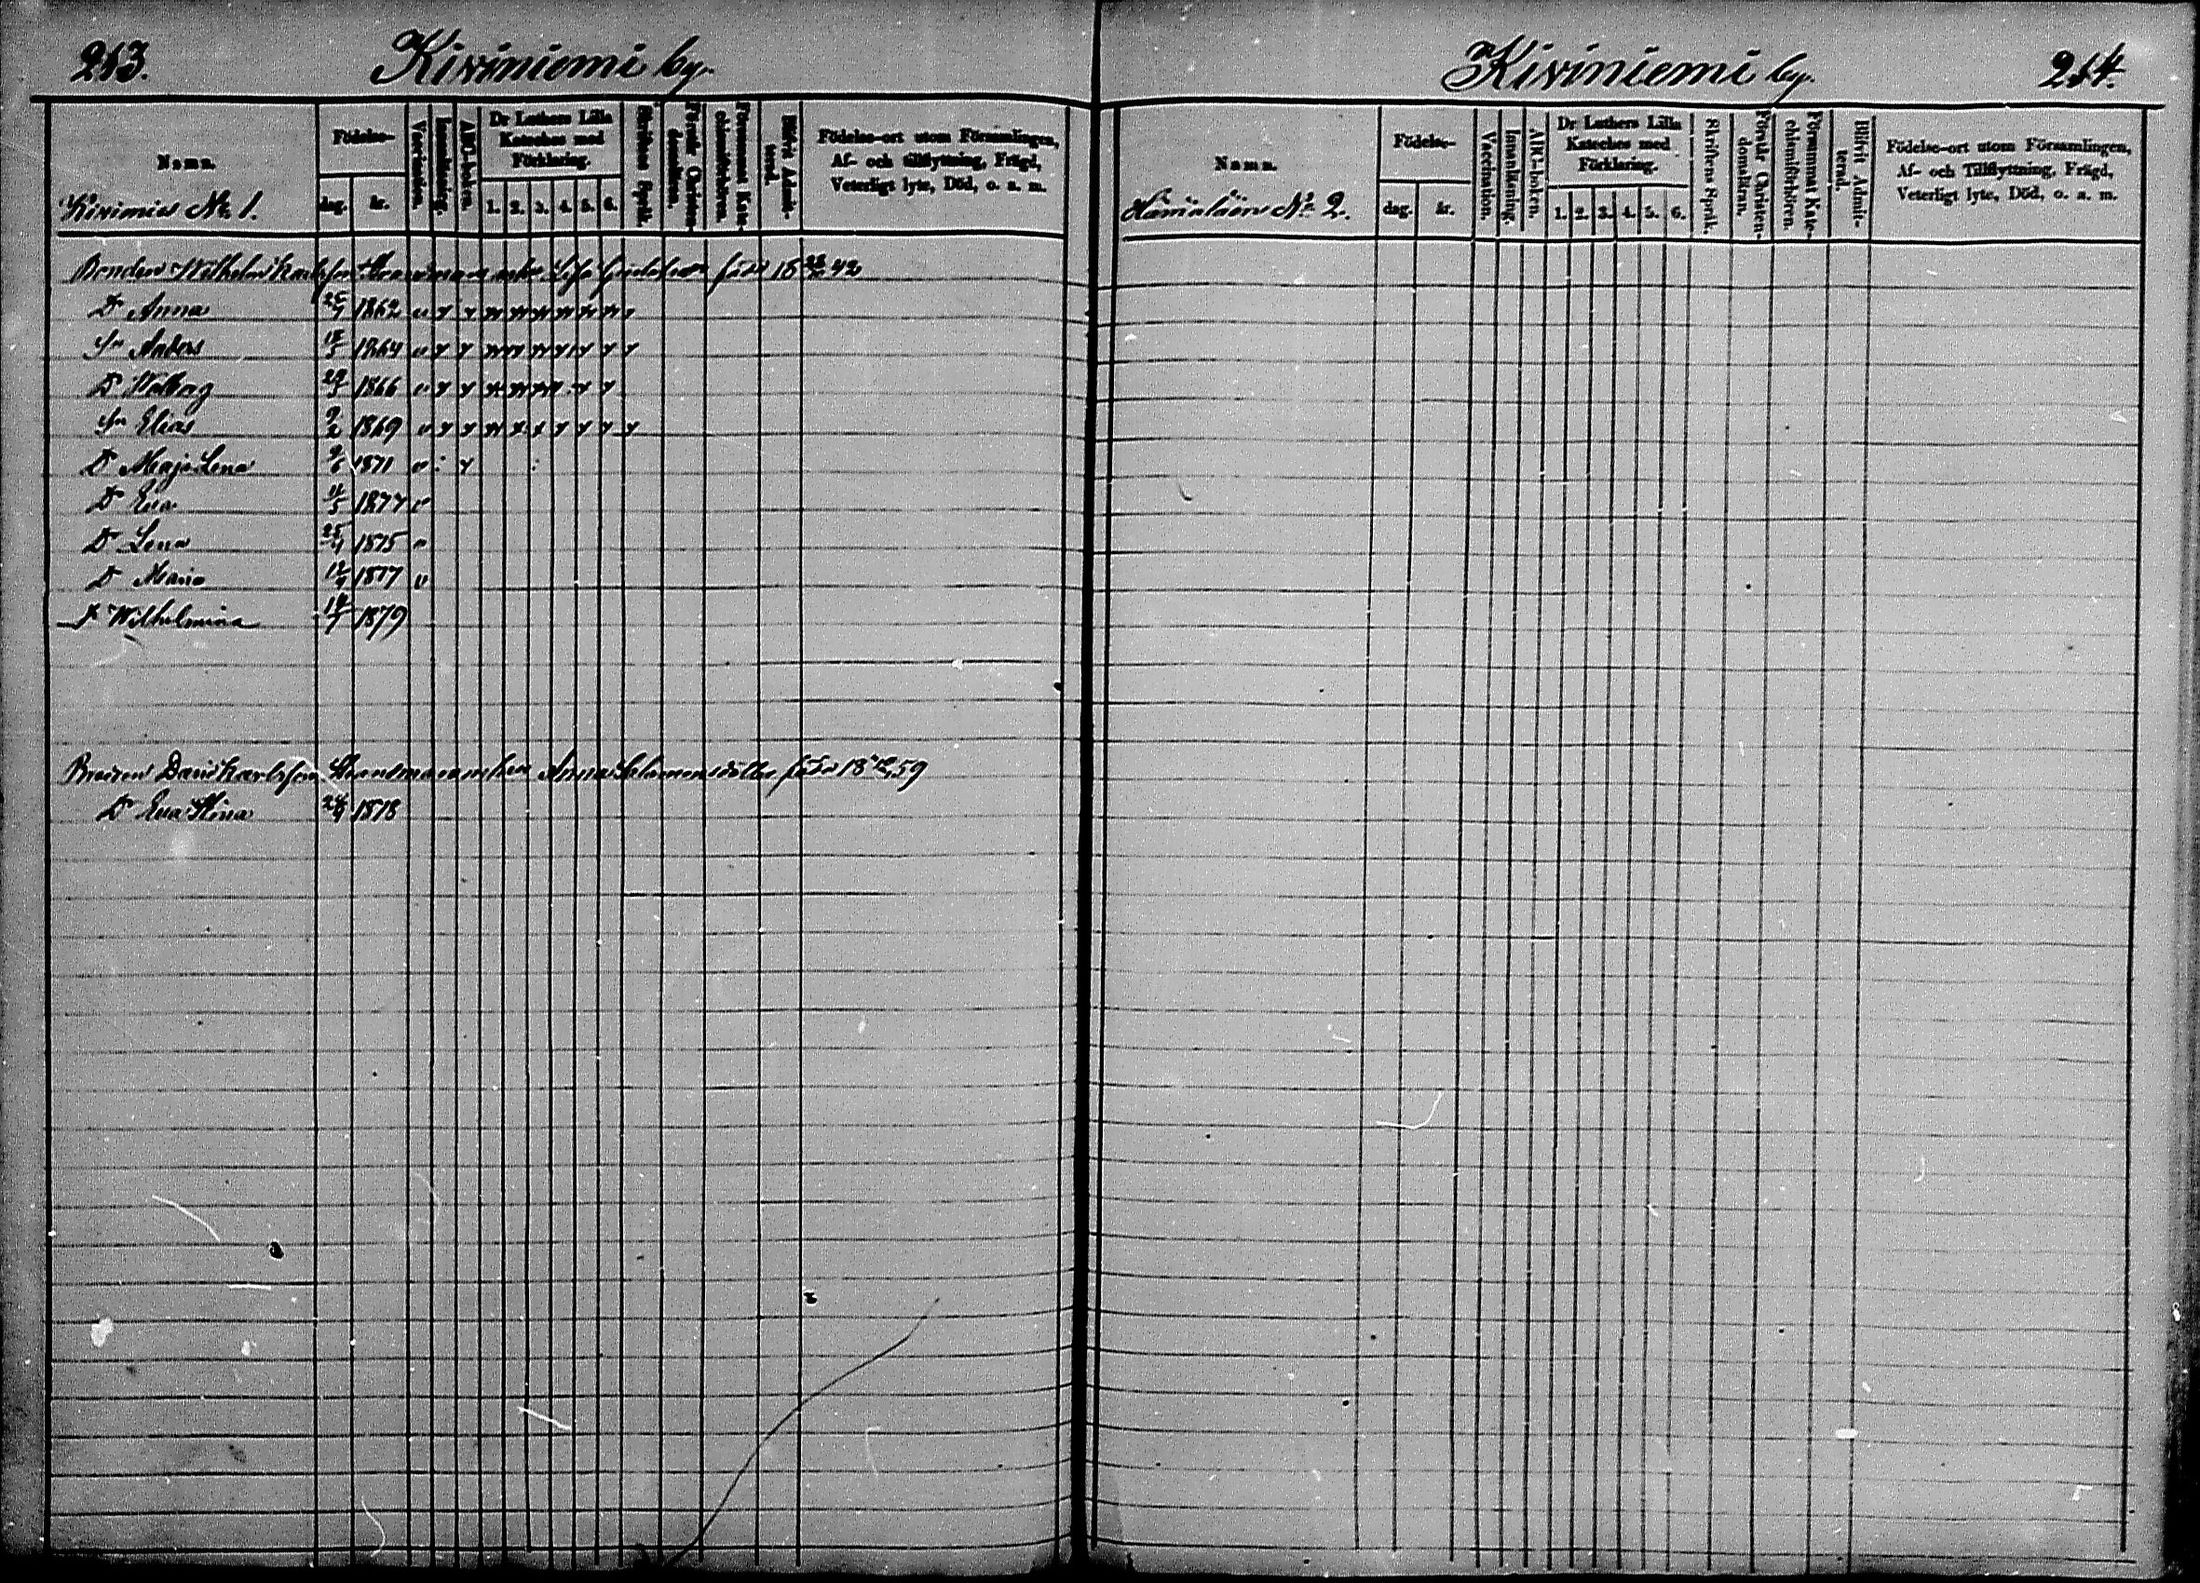 213.
Kiviniemi by.
Namn.
Födelse-
dag.
år.
Vaccination.
Innanläsning.
ABC-boken.
Dr Luthers Lilla
Kateches med
Förklaring.
1. 2. 3. 4. 5. 6.
Skriftens Språk.
Förstår Christen-
domsläran.
Försummat Kate-
chismiförhören.
Blifvit Admit-
terad.
Födelse-ort utom Församlingen,
Af- och tillflyttning, Frägd,
Veterligt lyte, Död, o. s. m.
Kivimies No 1.
Bonden Wilhelm Karlsson född 18 42
Dr Anna 1862
Sn Anders 1864
Dr Walborg 1866
Sn Elias 9/2 1869
Dr Maja Lena 1871
Dr Eva 1877
Dr Lena 1875
Dr Maria 12/9 1877
Dr Wilhelmina 1879
Brodren David Karlsson Anna Salomonsdotter född 18 59
Dr Eva Stina 1878
Kiviniemi by.
214.
Namn.
Födelse-
dag.
år.
Vaccination.
Innanläsning.
ABC-boken.
Dr Luthers Lilla
Kateches med
Förklaring.
1. 2. 3. 4. 5. 6.
Skriftens Språk.
Förstår Christen-
domsläran.
Försummat Kate-
chismiförhören.
Blifvit Admit-
terad.
Födelse-ort utom Församlingen,
Af- och Tillflyttning, Frägd,
Veterligt lyte, Död, o. s. m.
Hämäläin No 2.